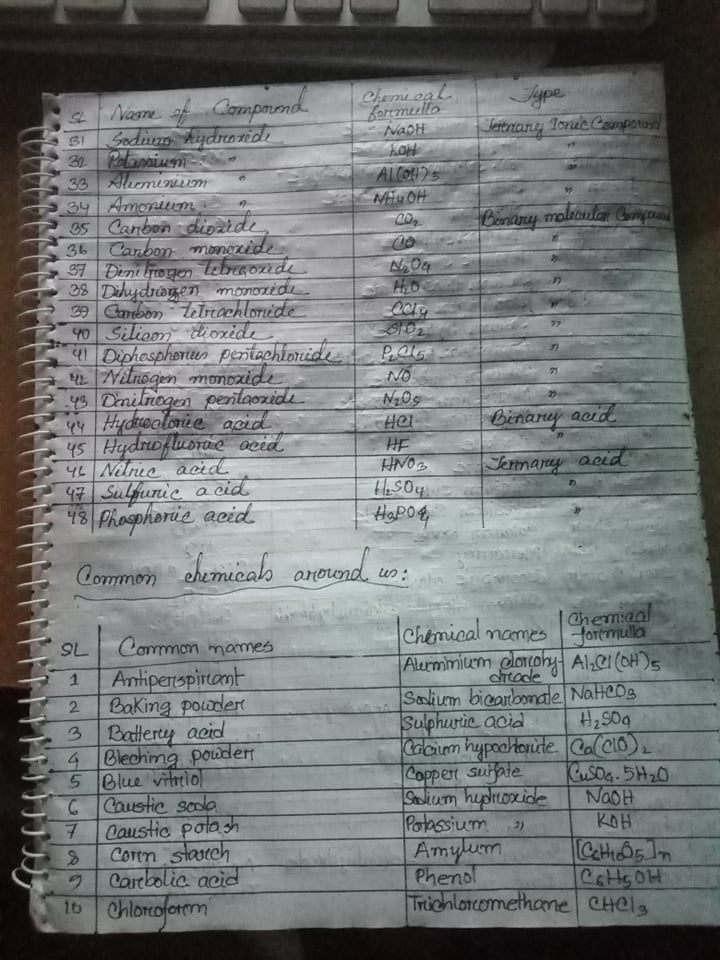 SL Name of Compound Chemical formulla Type
31 Sodium hydroxide NaOH Ternary Ionic Compound
32 Potassium " KOH "
33 Aluminium " Al(OH)3 "
34 Amonium " NH4OH "
35 Carbon dioxide CO2 Binary molecular Compound
36 Carbon monoxide CO "
37 Dinitrogen tetraoxide N2O4 "
38 Dihydrozen monoxide H2O "
39 Carbon tetrachloride CCl4 "
40 Silicon dioxide SiO2 "
41 Diphosphorus pentachloride P2Cl5 "
42 Nitrogen monoxide NO "
43 Dnitrogen pentaoxide N2O5 "
44 Hydrocloric acid HCl Binary acid
45 Hydrofluoric acid HF "
46 Nitric acid HNO3 Ternary acid
47 Sulfuric acid H2SO4 "
48 Phosphoric acid H3PO4 "
Common chemicals around us:
SL Common names Chemical names Chemical formulla
1 Antiperspirant Aluminium clorohy-drcade Al2Cl(OH)5
2 Baking powder Sodium bicarbonate NaHCO3
3 Battery acid Sulphuric acid H2SO4
4 Bleching powder Calcium hypochlorite Ca(ClO)2
5 Blue vitriol Copper sulfate CuSO4.5H2O
6 Caustic soda Sodium hydroxide NaOH
7 Caustic potash Potassium " KOH
8 Corn starch Amylum [C6H10O5]n
9 Carbolic acid Phenol C6H5OH
10 Chloroform Trichloromethane CHCl3